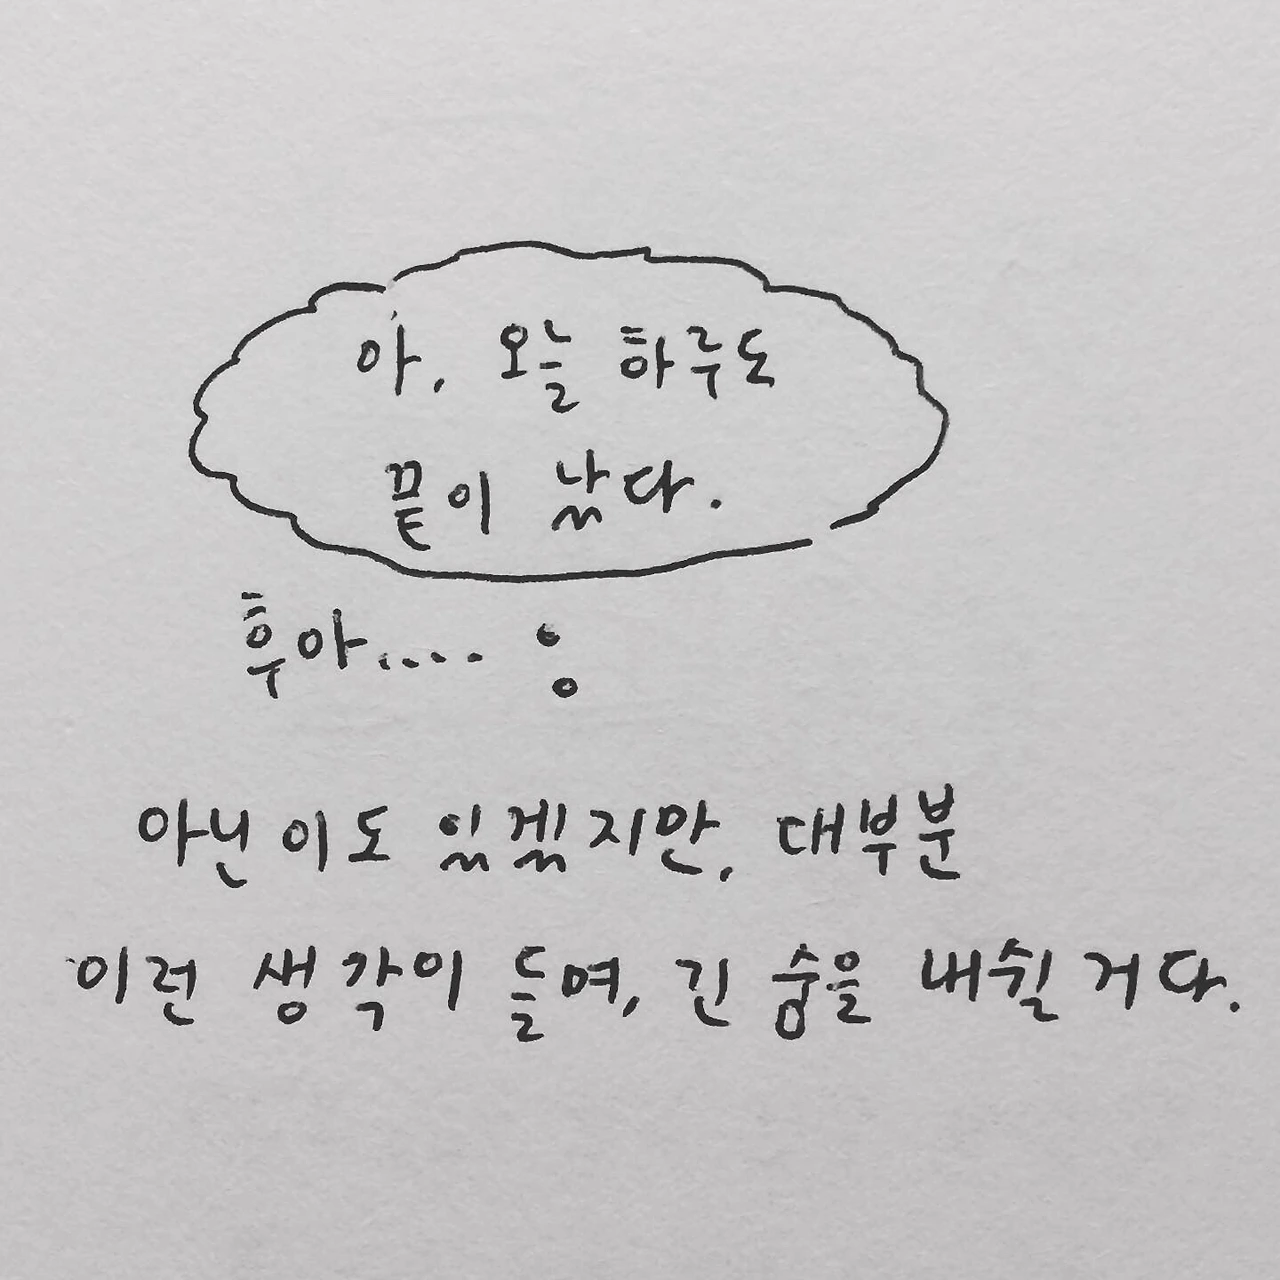 아, 오늘 하루도
끝이 났다.
후아....
아닌 이도 있겠지만, 대부분
이런 생각이 들며, 긴 숨을 내쉴 거다.